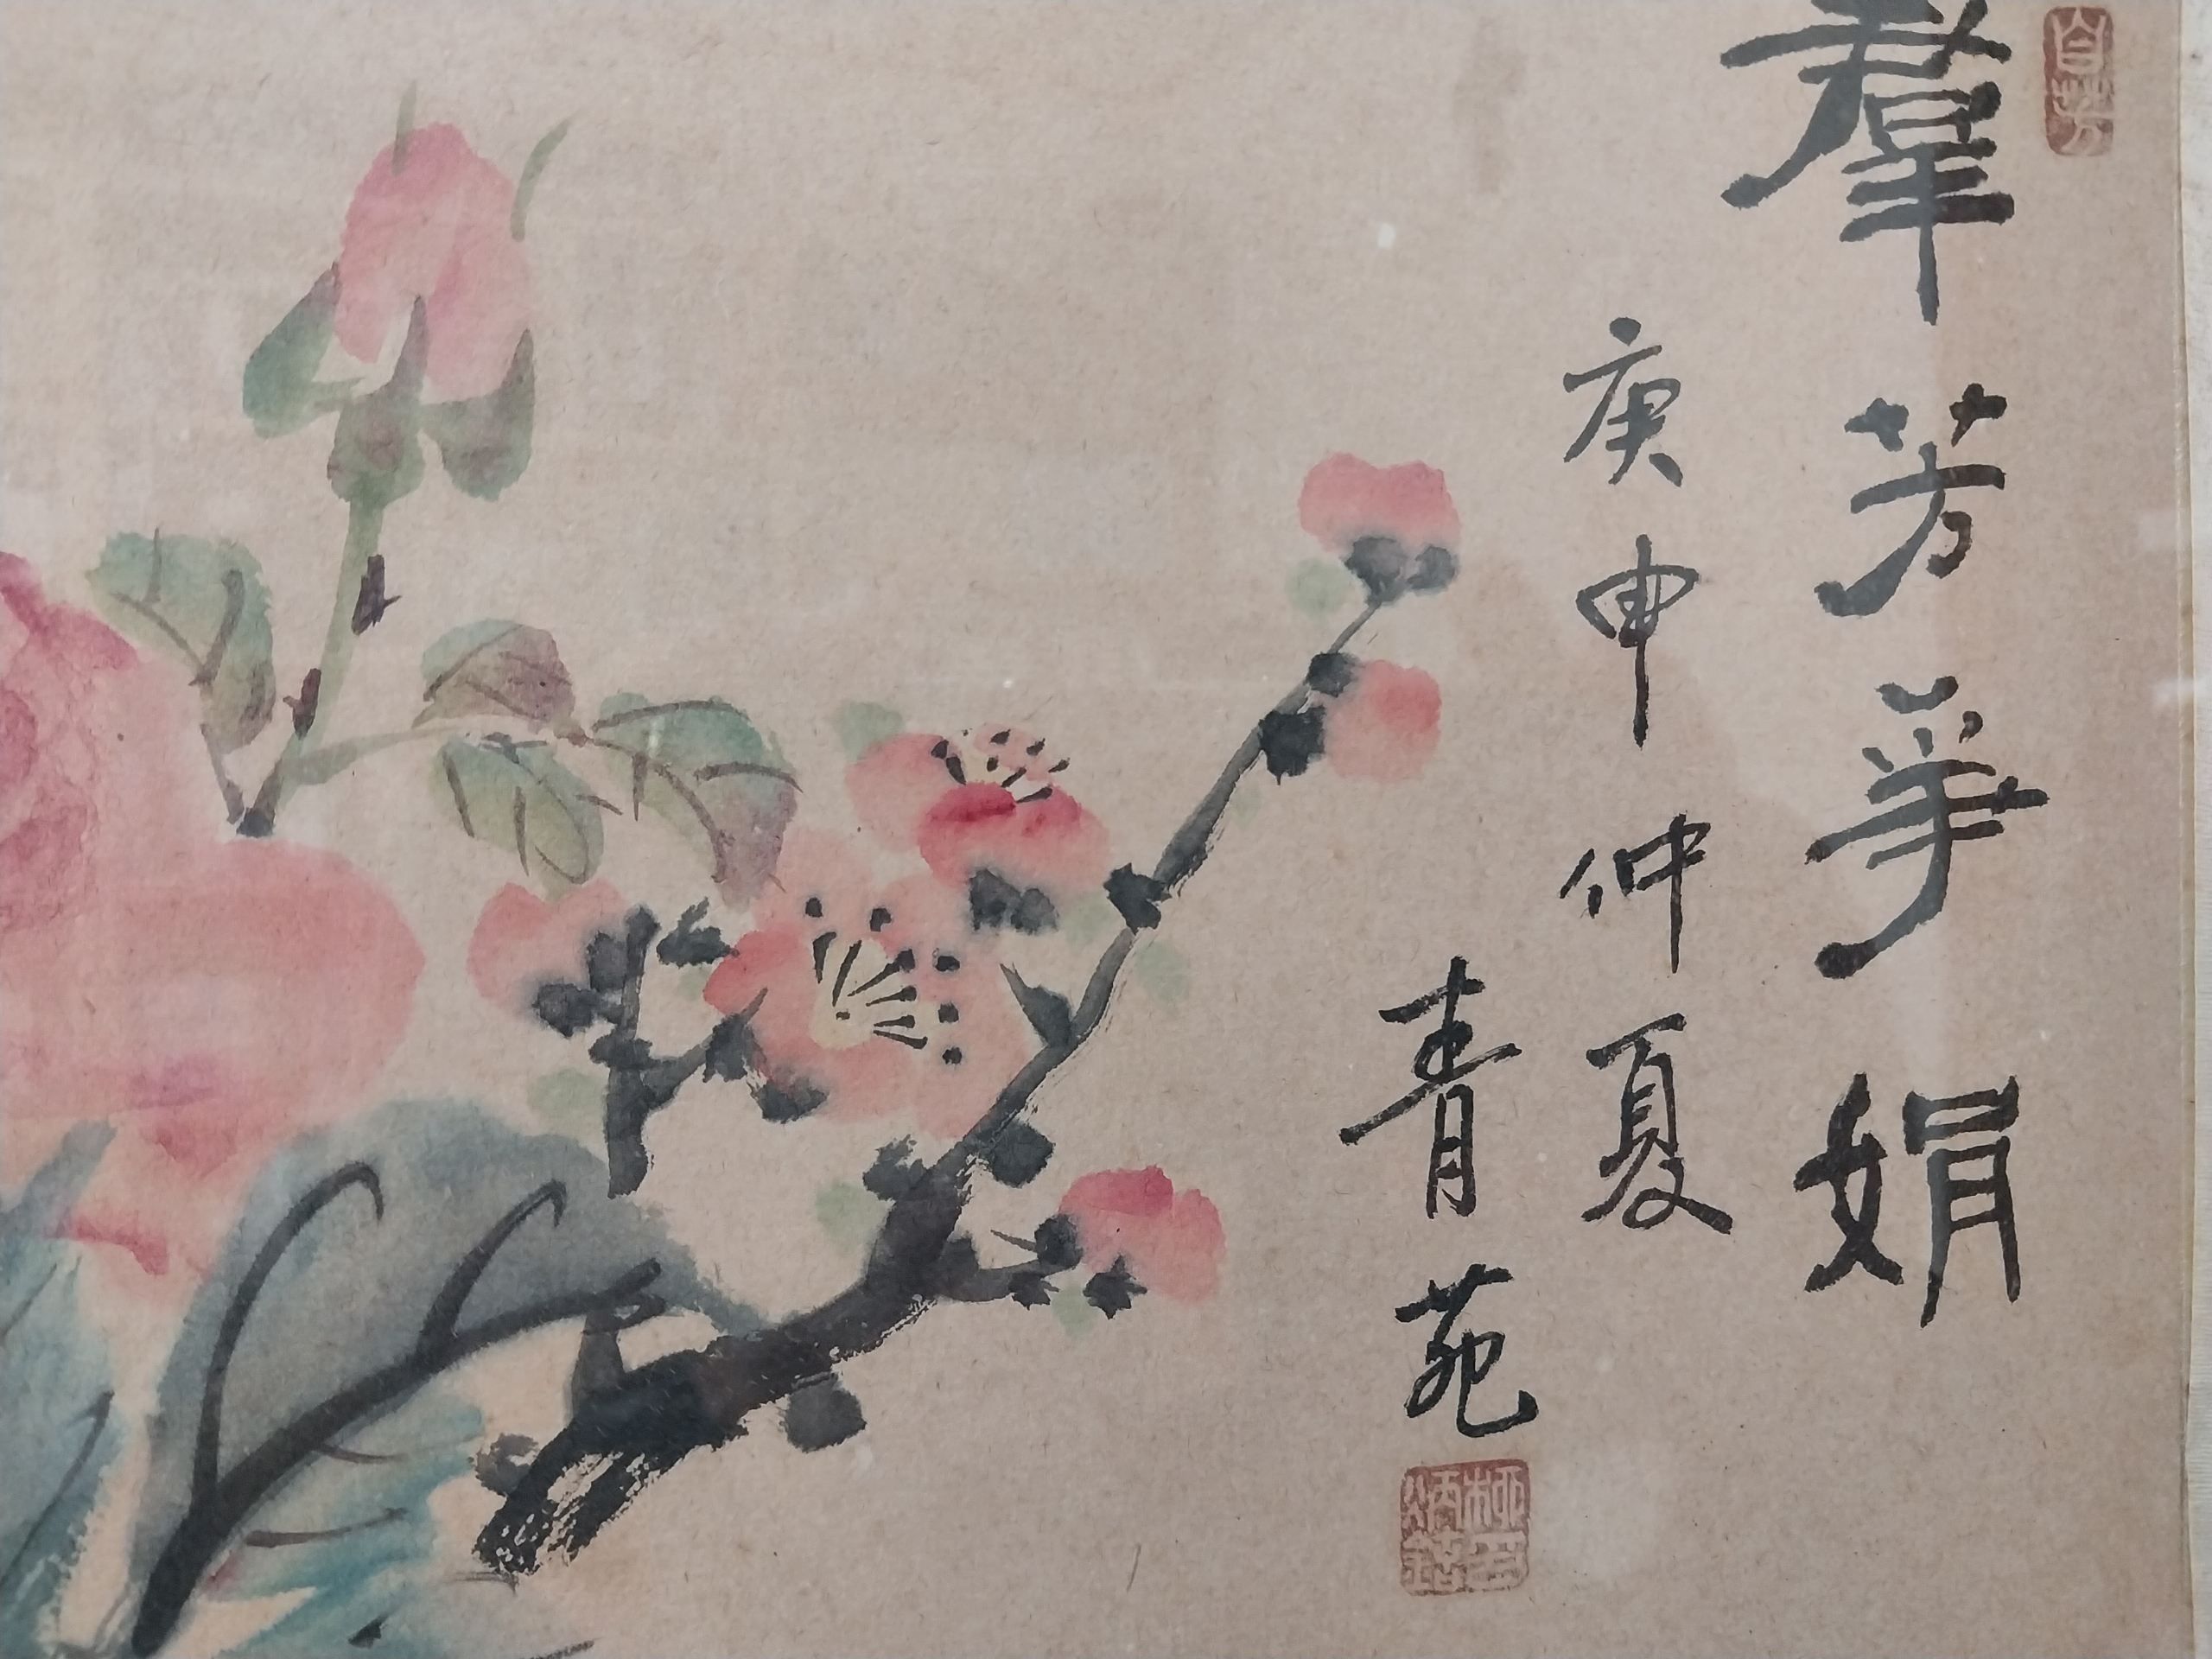 羣芳爭娟
庚申仲夏
青苑